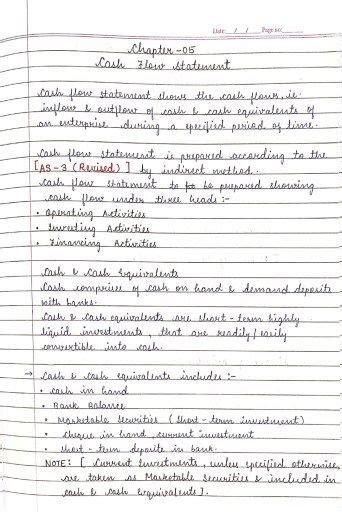 Date: / / Page no:
Chapter-05
Cash Flow Statement
Cash flow statement shows the cash flows, i.e.
inflow & outflow of cash & cash equivalents of
an enterprise during a specified period of time.
Cash flow statement is prepared according to the
[AS-3 (Revised)] by indirect method.
Cash flow statement to be prepared showing
cash flow under three heads:-
• Operating Activities
• Investing Activities
• Financing Activities
Cash & Cash Equivalents
Cash comprises of cash on hand & demand deposits
with banks.
Cash & Cash equivalents are short-term highly
liquid investments, that are readily/easily
convertible into cash.
→ Cash & cash equivalents includes:-
• cash in hand
• Bank Balance
• Marketable Securities (short-term investment)
• cheque in hand, current investment
• short-term deposits in bank.
NOTE: [ Current Investments, unless specified otherwise,
are taken as Marketable Securities & included in
cash & cash Equivalents].